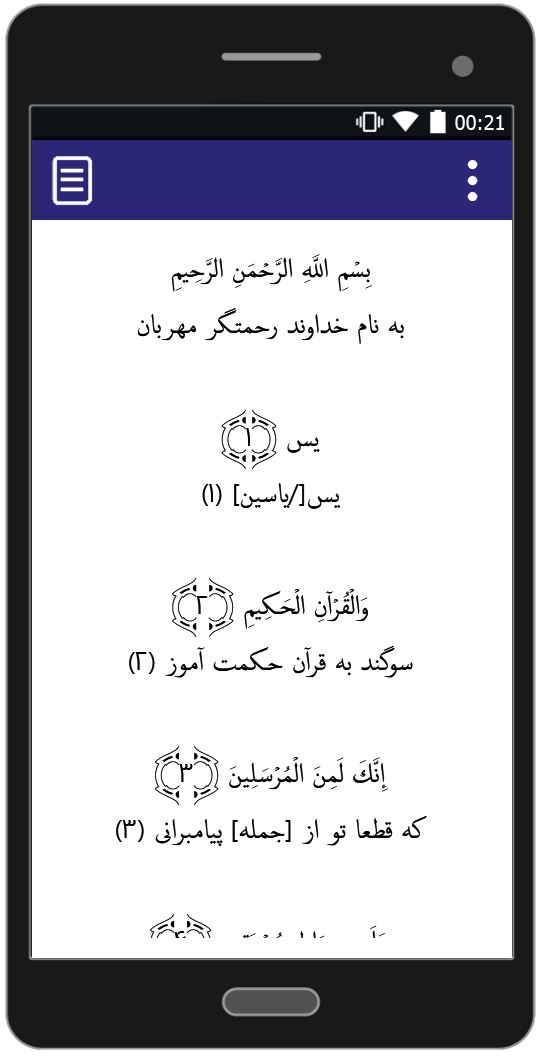 00:21
بِسْمِ اللَّهِ الرَّحْمَنِ الرَّحِيمِ
به نام خداوند رحمتگر مهربان
يس ﴿۱﴾
يس[/ياسين] (۱)
وَالْقُرْآنِ الْحَكِيمِ ﴿۲﴾
سوگند به قرآن حكمت آموز (۲)
إِنَّكَ لَمِنَ الْمُرْسَلِينَ ﴿۳﴾
كه قطعا تو از [جمله] پيامبرانى (۳)